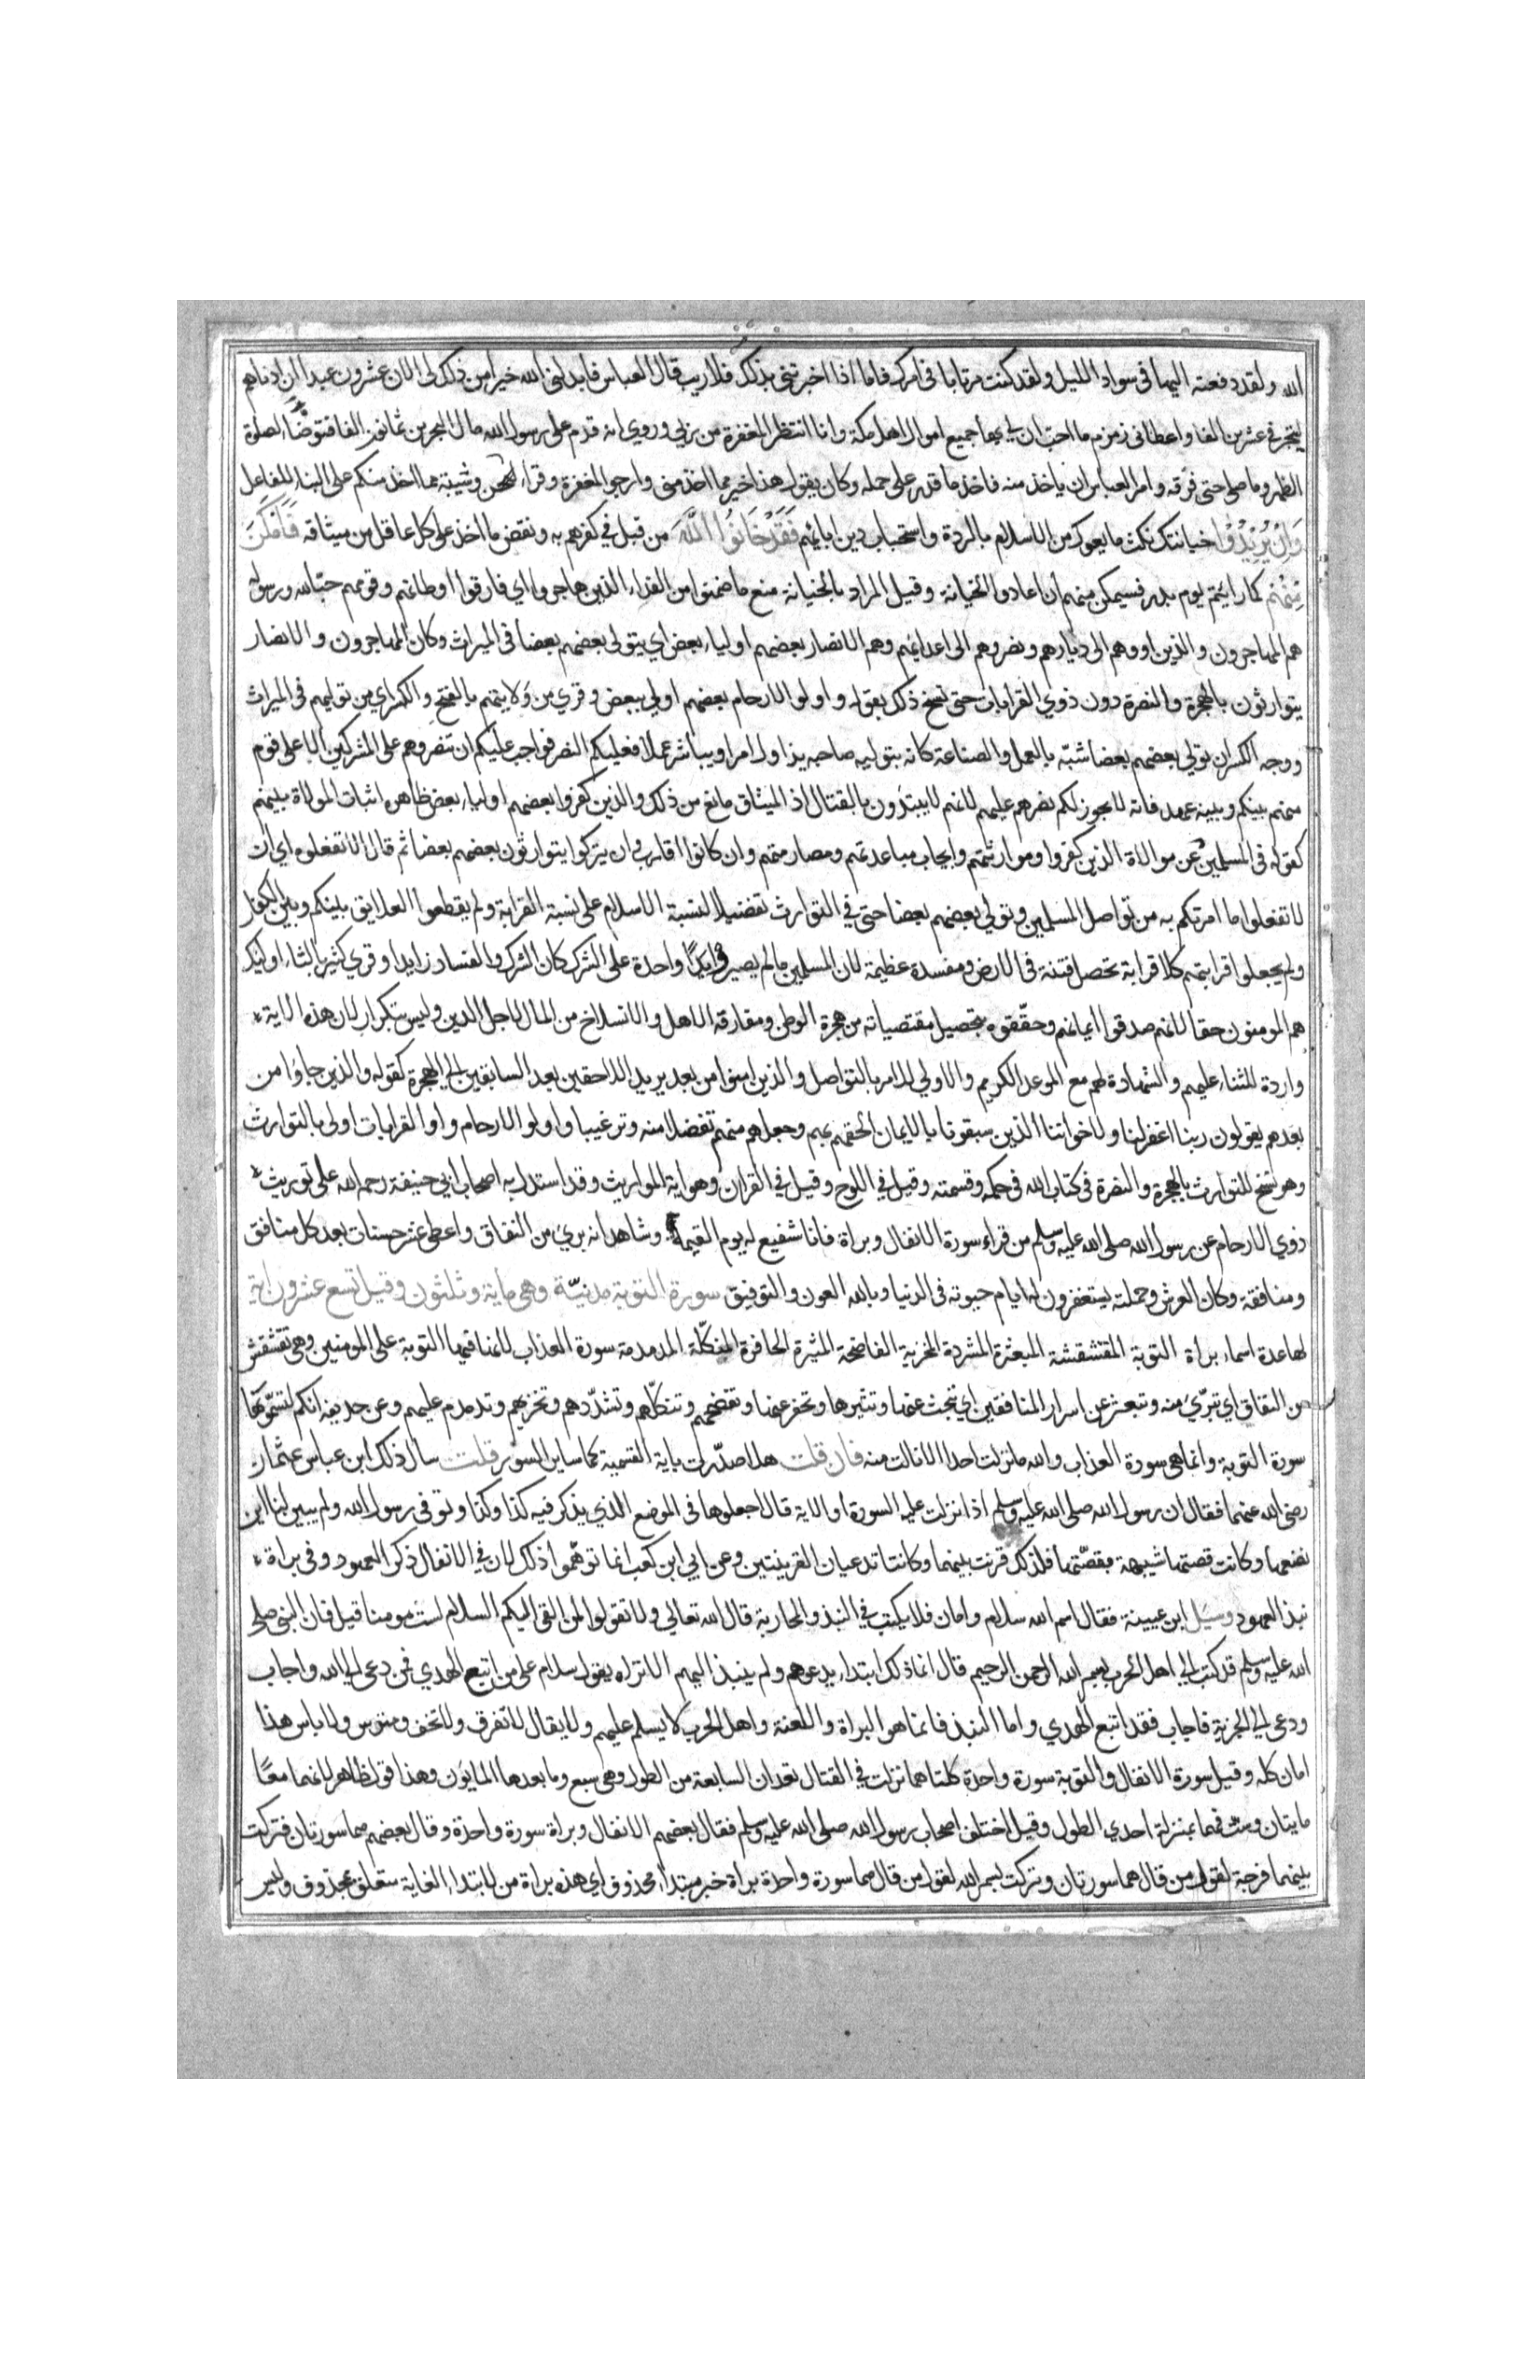 الله ولقد دفعته اليها في سواد الليل ولقد كنت مرتابا في امرك فاما اذا اخبرتني بذلك فلا ريب قال العباس فابدلني الله خيرا من ذلك لي الان عشرون عبدا ان ادناهم
ليتجر في عشرين الفا واعطاني زمزم ما احب ان لي بها جميع اموال اهل مكة وانا انتظر المغفرة من ربي وروي انه قدم على رسول الله مال البحرين ثمانون الفا فتوضّأ لصلوة
الظهر وما صلى حتى فرقه وامر العباس ان ياخذ منه فاخذ ما قدر على حمله وكان يقول هذا خير مما اخذ مني وارجو المغفرة وقراء الحسن وشيبة مما اخذ منكم على البناء للفاعل
وَاِنْ يُرِيْدُوْا خيانتك نكث ما بايعوك من الاسلام بالردة واستحباب دين ابائهم فَقَدْ خَانُوا اللّٰهَ من قبل في كفرهم به ونقض ما اخذ على كل عاقل من ميثاقه فَاَمْكَنَ
مِنْهُمْ كما رايتم يوم بدر فسيمكن منهم ان اعادوا الخيانة وقيل المراد بالخيانة منع ما ضمنوا من الفداء الذين هاجروا اي فارقوا اوطانهم وقومهم حبّا لله ورسوله
هم المهاجرون والذين اووهم الى ديارهم ونصروهم الى اعدائهم وهم الانصار بعضهم اولياء بعض اي يتولى بعضهم بعضا في الميراث وكان المهاجرون والانصار
يتوارثون بالهجرة والنصرة دون ذوي القرابات حتى نسخ ذلك بقوله واولو الارحام بعضهم اولى ببعض وقري من وَلايتهم بالفتح والكسر اي من توليهم في الميراث
ووجه الكسر ان تولي بعضهم بعضا شبّه بالعمل والصناعة كانه بتوليه صاحبه يزاول امرا ويباشر عملا فعليكم النصر فواجب عليكم ان تنصروهم على المشركين الا على قوم
منهم بينكم وبينه عهد فانه لا يجوز لكم نصرهم عليهم لانهم لا يبتدؤن بالقتال اذ الميثاق مانع من ذلك والذين كفروا بعضهم اولياء بعض ظاهره اثبات الموالاة بينهم
كقوله في المسلمين عن موالاة الذين كفروا وموارثتهم وايجاب مباعدتهم ومصارمتهم وان كانوا اقارب وان يتركوا يتوارثون بعضهم بعضا ثم قال الا تفعلوه اي ان
لا تفعلوا ما امرتكم به من تواصل المسلمين وتولي بعضهم بعضا حتى في التوارث تفضيلا لنسبة الاسلام على نسبة القرابة ولم يقطعوا العلايق بينكم وبين الكفار
ولم يجعلوا قرابتهم كلا قرابة تحصل فتنة في الارض ومفسدة عظيمة لان المسلمين ما لم يصيروا يدًا واحدة على الشرك كان الشرك والفساد زايدا وقري كثير بالثاء اوليك
هم المومنون حقا لانهم صدقوا ايمانهم وحقّقوه بتحصيل مقتضياته من هجرة الوطن ومفارقة الاهل والانسلاخ من المال لاجل الدين وليس بتكرار لان هذه الاية
واردة للثناء عليهم والشهادة لهم مع الموعد الكريم والاولى للامر بالتواصل والذين امنوا من بعد يريد اللاحقين بعد السابقين الى الهجرة كقوله والذين جاؤا من
بعدهم يقولون ربنا اغفر لنا ولاخواننا الذين سبقونا بالايمان الحقهم بهم وجعلهم منهم تفضلا منه وترغيبا واولو الارحام واو القرابات اولى بالتوارث
وهو نسخ للتوارث بالهجرة والنصرة في كتاب الله في حكمه وقسمته وقيل في اللوح وقيل في القران وهو اية المواريث وقد استدل به اصحاب ابي حنيفة رحمه الله على توريث
ذوي الارحام عن رسول الله صلى الله عليه وسلم من قراء سورة الانفال وبراة فانا شفيع له يوم القيمة وشاهد انه بري من النفاق واعطي عشر حسنات بعدد كل منافق
ومنافقة وكان العرش وحملته يستغفرون له ايام حيوته في الدنيا وبالله العون والتوفيق سورة التوبة مدنيّة وهي ماية وثلثون وقيل تسع عشرون اية
لها عدة اسماء براة التوبة المقشقشة المبعثرة المشردة المخزية الفاضحة المثيرة الحافرة المنكّلة المدمدمة سورة العذاب لان فيها التوبة على المومنين وهي تقشقش
من النفاق اي تبرّي منه وتبعثر عن اسرار المنافقين اي تبحث عنها وتثيرها وتحفر عنها وتفضحهم وتنكّلهم وتشرّدهم وتخزيهم وتدمدم عليهم وعن حذيفة انكم تسمّونها
سورة التوبة وانما هي سورة العذاب والله ما نزلت احدا الا نالت منه فان قلت هلا صدّرت باية التسمية كما ساير السور قلت سال ذلك ابن عباس عثمان
رضي الله عنهما فقال ان رسول الله صلى الله عليه وسلم اذا نزلت عليه السورة او الاية قال اجعلوها في الموضع الذي يذكر فيه كذا وكذا وتوفي رسول الله ولم يبين لنا اين
نضعها وكانت قصتها شبيهة بقصّتها فلذلك قرنت بينهما وكانتا تدعيان القرينتين وعن ابي ابن كعب انما توهّموا ذلك لان في الانفال ذكر العهود وفي براة
نبذ العهود وسئل ابن عيينة فقال اسم الله سلام وامان فلا يكتب في النبذ والمحاربة قال الله تعالى ولا تقولوا لمن القى اليكم السلام لست مومنا قيل فان النبي صلى
الله عليه وسلم قد كتب الى اهل الحرب بسم الله الرحمن الرحيم قال انما ذلك ابتداء يدعوهم ولم ينبذ اليهم الا تراه يقول سلام على من اتبع الهدي فمن دعى الى الله واجاب
ودعى الى الجزية فاجاب فقد اتبع الهدي واما النبذ فانما هو البراة واللعنة واهل الحرب لا يسلم عليهم ولا يقال لا تفرق ولا تخف ومترس ولا باس هذا
امان كله وقيل سورة الانفال والتوبة سورة واحدة كلتاهما نزلت في القتال تعدان السابعة من الطول وهي سبع وما بعدها المايون وهذا قول ظاهر لانهما معًا
مايتان وست فهما بمنزلة احدي الطول وقيل اختلف اصحاب رسول الله صلى الله عليه وسلم فقال بعضهم الانفال وبراة سورة واحدة وقال بعضهم هما سورتان فتركت
بينهما فرجة لقول من قال هما سورتان وتركت بسم الله لقول من قال هما سورة واحدة براة خبر مبتداء محذوف اي هذه براة من لابتداء الغاية متعلق بمحذوف وليس